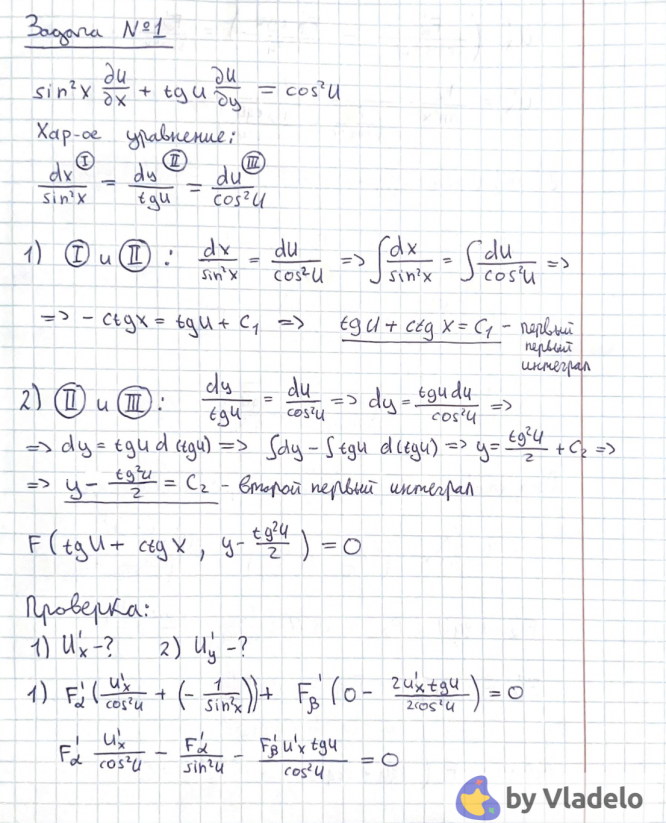 Задача №1
sin²x ∂u/∂x + tgu ∂u/∂y = cos²u
Хар-ое уравнение:
dx/sin²x Ⓘ = dy/tgu ⓘⓘ = du/cos²u ⓘⓘⓘ
1) Ⓘ и ⓘⓘ : dx/sin²x = du/cos²u => ∫dx/sin²x = ∫du/cos²u =>
=> -ctgx = tgu + C₁ => tgu + ctg x = C₁ - первый
первый
интеграл
2) ⓘⓘ и ⓘⓘⓘ : dy/tgu = du/cos²u => dy = tgu du/cos²u =>
=> dy = tgu d(tgu) => ∫dy - ∫tgu d(tgu) => y = tg²u/2 + C₂ =>
=> y - tg²u/2 = C₂ - второй первый интеграл
F(tgu + ctg x, y - tg²u/2) = 0
Проверка:
1) U'x -? 2) U'y -?
1) F'α (u'x/cos²u + (-1/sin²x)) + F'β (0 - 2u'x tgu/2cos²u) = 0
F'α u'x/cos²u - F'α/sin²u - F'β u'x tgu/cos²u = 0
by Vladelo